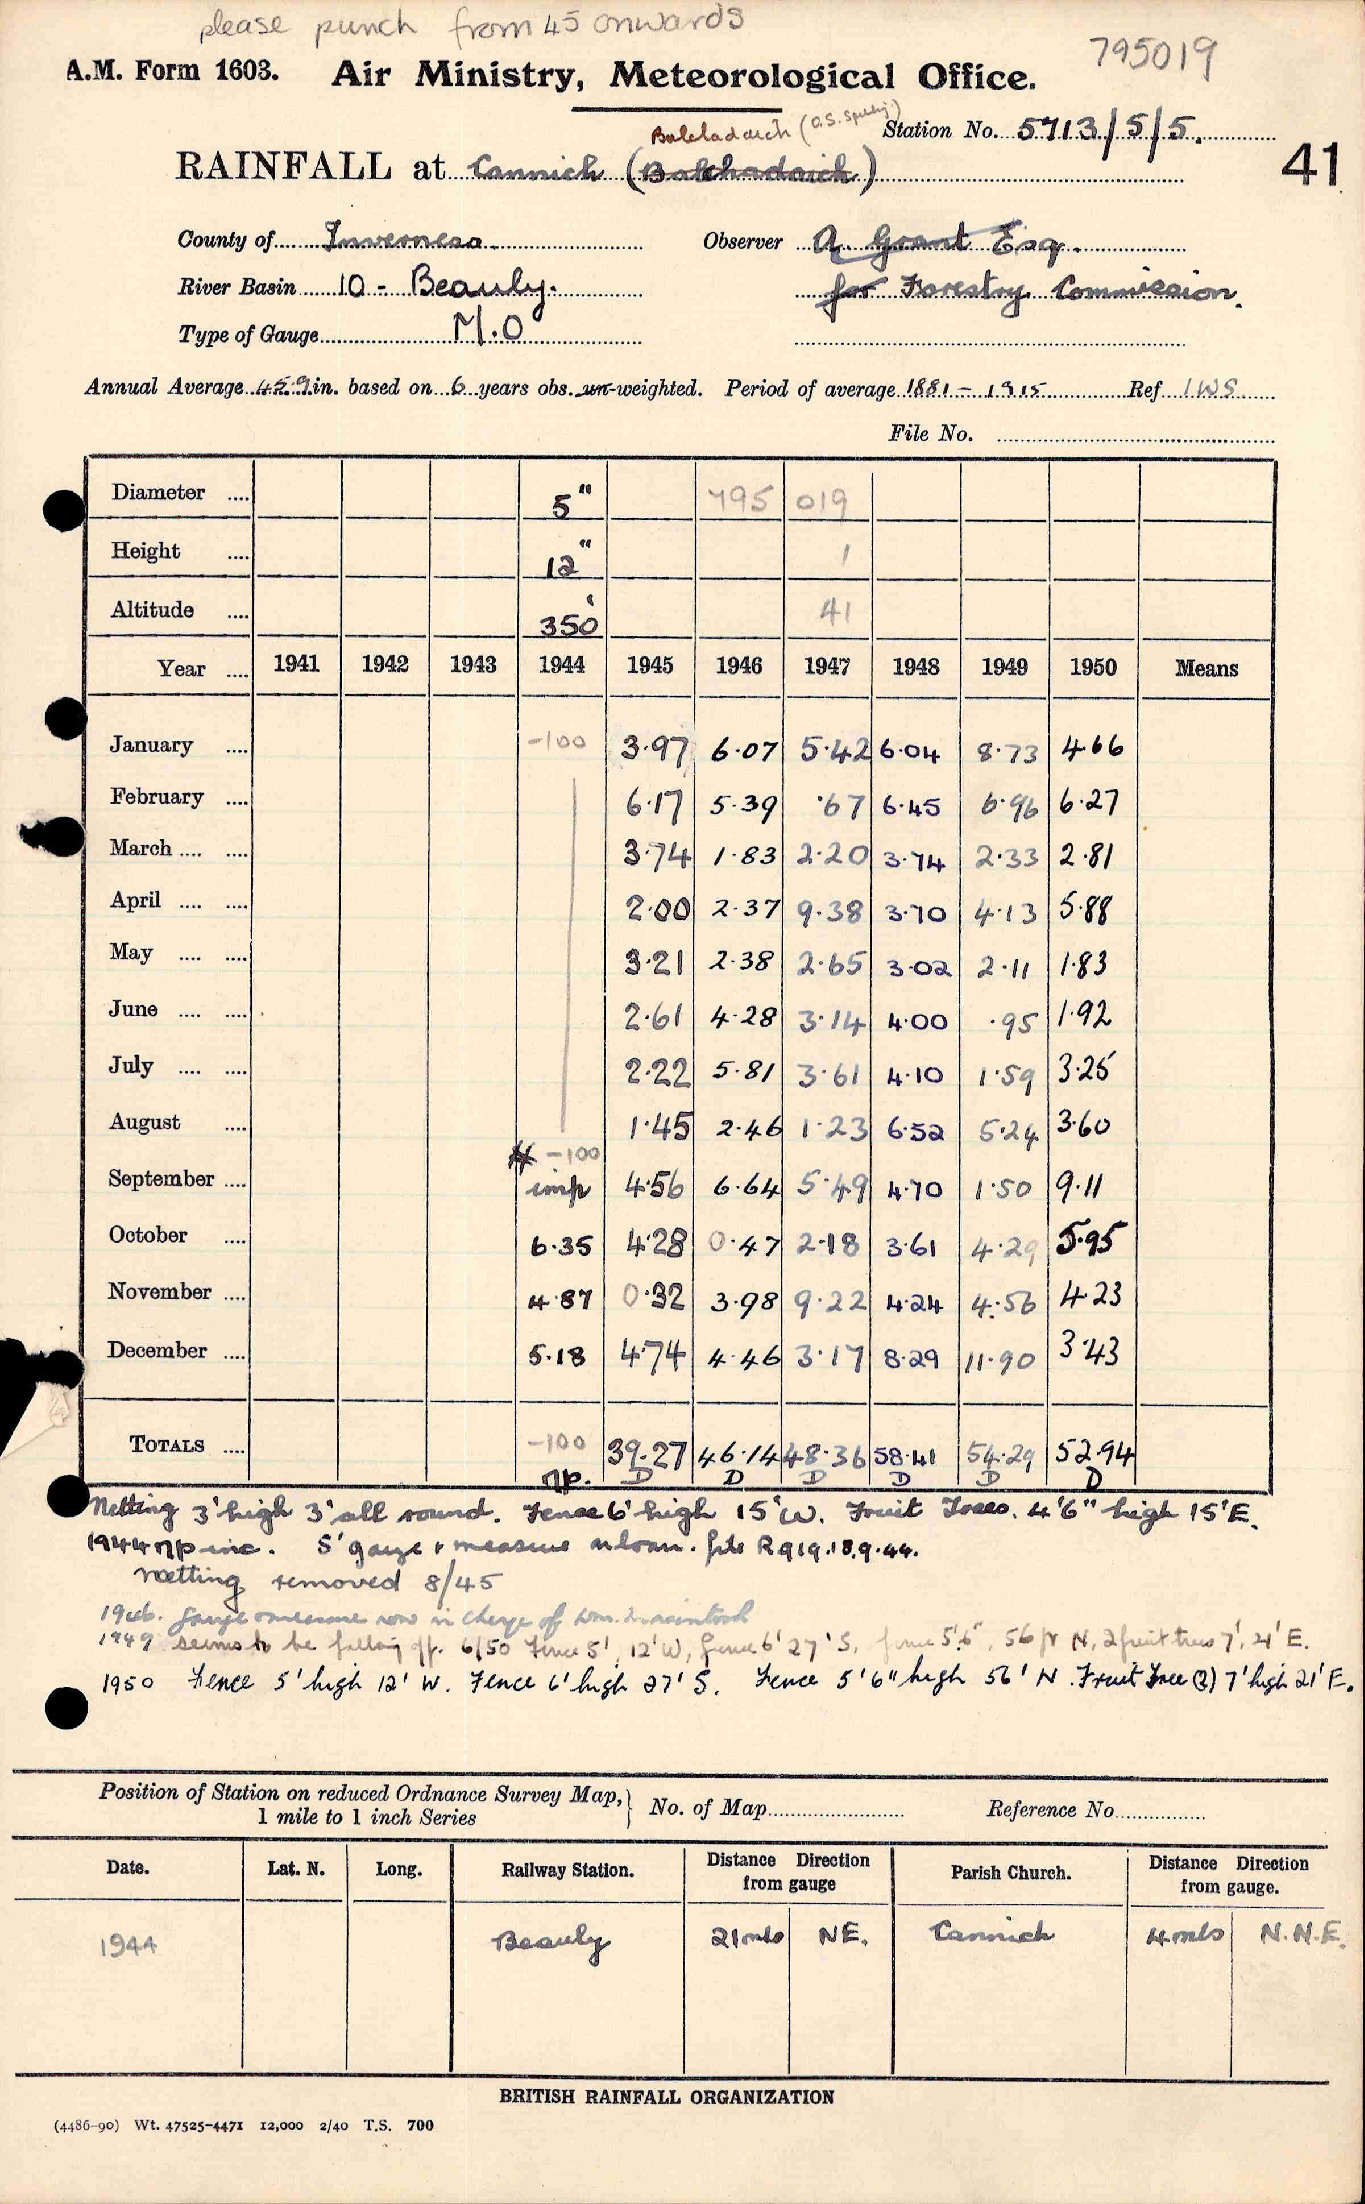 please punch from 45 onwards
795019
A.M. Form 1603. Air Ministry, Meteorological Office.
(O.S. Spelling)
Station No. 5713/5/5.
RAINFALL at Cannich
41
County of Inverness. Observer A. Grant Esq.
River Basin 10 - Beauly. for Forestry Commission.
Type of Gauge M.O
Annual Average 45.9 in. based on 6 years obs. un-weighted. Period of average 1881 - 1915 Ref IWS
File No.
Diameter .... 5" 795 019
Height .... 12" 1
Altitude .... 350' 41
Year .... 1941 1942 1943 1944 1945 1946 1947 1948 1949 1950 Means
January .... -100 3.97 6.07 5.42 6.04 8.73 4.66
February .... 6.17 5.39 .67 6.45 6.96 6.27
March .... .... 3.74 1.83 2.20 3.74 2.33 2.81
April .... .... 2.00 2.37 9.38 3.70 4.13 5.88
May .... .... 3.21 2.38 2.65 3.02 2.11 1.83
June .... .... 2.61 4.28 3.14 4.00 .95 1.92
July .... .... 2.22 5.81 3.61 4.10 1.59 3.25
August .... 1.45 2.46 1.23 6.52 5.24 3.60
-100
September .... imp 4.56 6.64 5.49 4.70 1.50 9.11
October .... 6.35 4.28 0.47 2.18 3.61 4.29 5.95
November .... 4.87 0.32 3.98 9.22 4.24 4.56 4.23
December .... 5.18 4.74 4.46 3.17 8.29 11.90 3.43
TOTALS .... -100 39.27 46.14 48.36 58.41 54.29 52.94
np. D D D D D D
Netting 3' high 3' all round. Fence 6' high 15' W. Fruit Trees. 4'6" high 15' E.
1944 np inc. 5" gauge & measure on loan. file R919.18.9.44.
Netting removed 8/45
1946. Gauge & measure now in charge of Wm.
1949 seems to be falling off. 6/50 Fence 5', 12' W, fence 6' 27' S, fence 5'6", 56 N, 2 fruit trees 7', 21' E.
1950 Fence 5' high 12' W. Fence 6' high 27' S. Fence 5'6" high 56' N. Fruit Tree (2) 7' high 21' E.
Position of Station on reduced Ordnance Survey Map,
1 mile to 1 inch Series
No. of Map Reference No.
Date. Lat. N. Long. Railway Station. Distance Direction from gauge Parish Church. Distance Direction from gauge.
1944 Beauly 21 mls NE. Cannich 4 mls N.N.E.
BRITISH RAINFALL ORGANIZATION
(4486-90) Wt. 47525-4471 12,000 2/40 T.S. 700